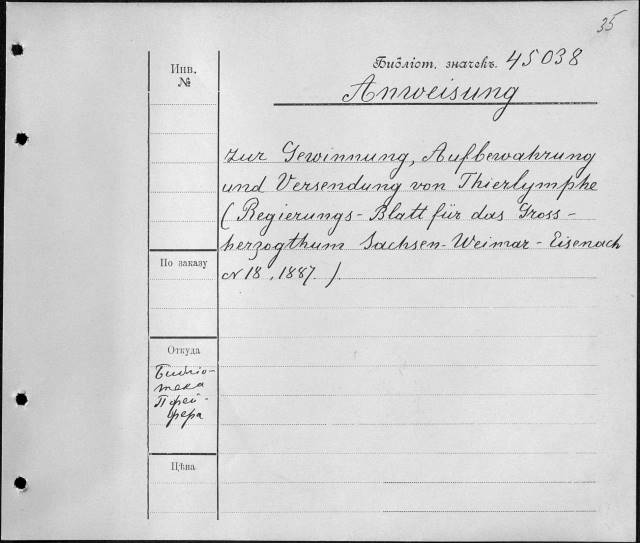 35
Библіот. значекъ. 45038
Anweisung
zur Gewinnung, Aufbewahrung
und Versendung von Thierlymphe
(Regierungs-Blatt für das Gross-
herzogthum Sachsen-Weimar-Eisenach
N 18, 1887.).
Инв.
№
По заказу
Откуда
Библіо-
тека
Пфей-
фера
Цѣна